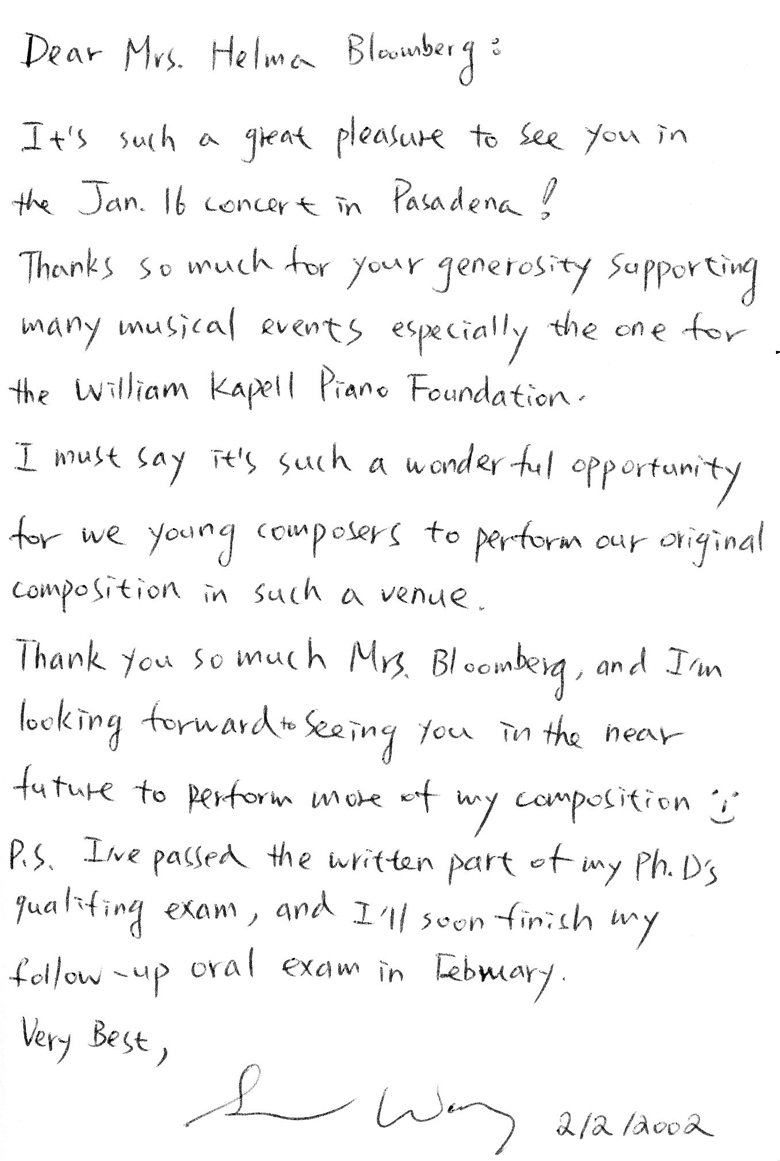 Dear Mrs. Helma Bloomberg:
It's such a great pleasure to see you in
the Jan. 16 concert in Pasadena!
Thanks so much for your generosity supporting
many musical events especially the one for
the William Kapell Piano Foundation.
I must say it's such a wonderful opportunity
for we young composers to perform our original
composition in such a venue.
Thank you so much Mrs. Bloomberg, and I'm
looking forward to seeing you in the near
future to perform more of my composition
P.S. I've passed the written part of my Ph.D's
qualifing exam, and I'll soon finish my
follow-up oral exam in February.
Very Best,
Wang 2/2/2002